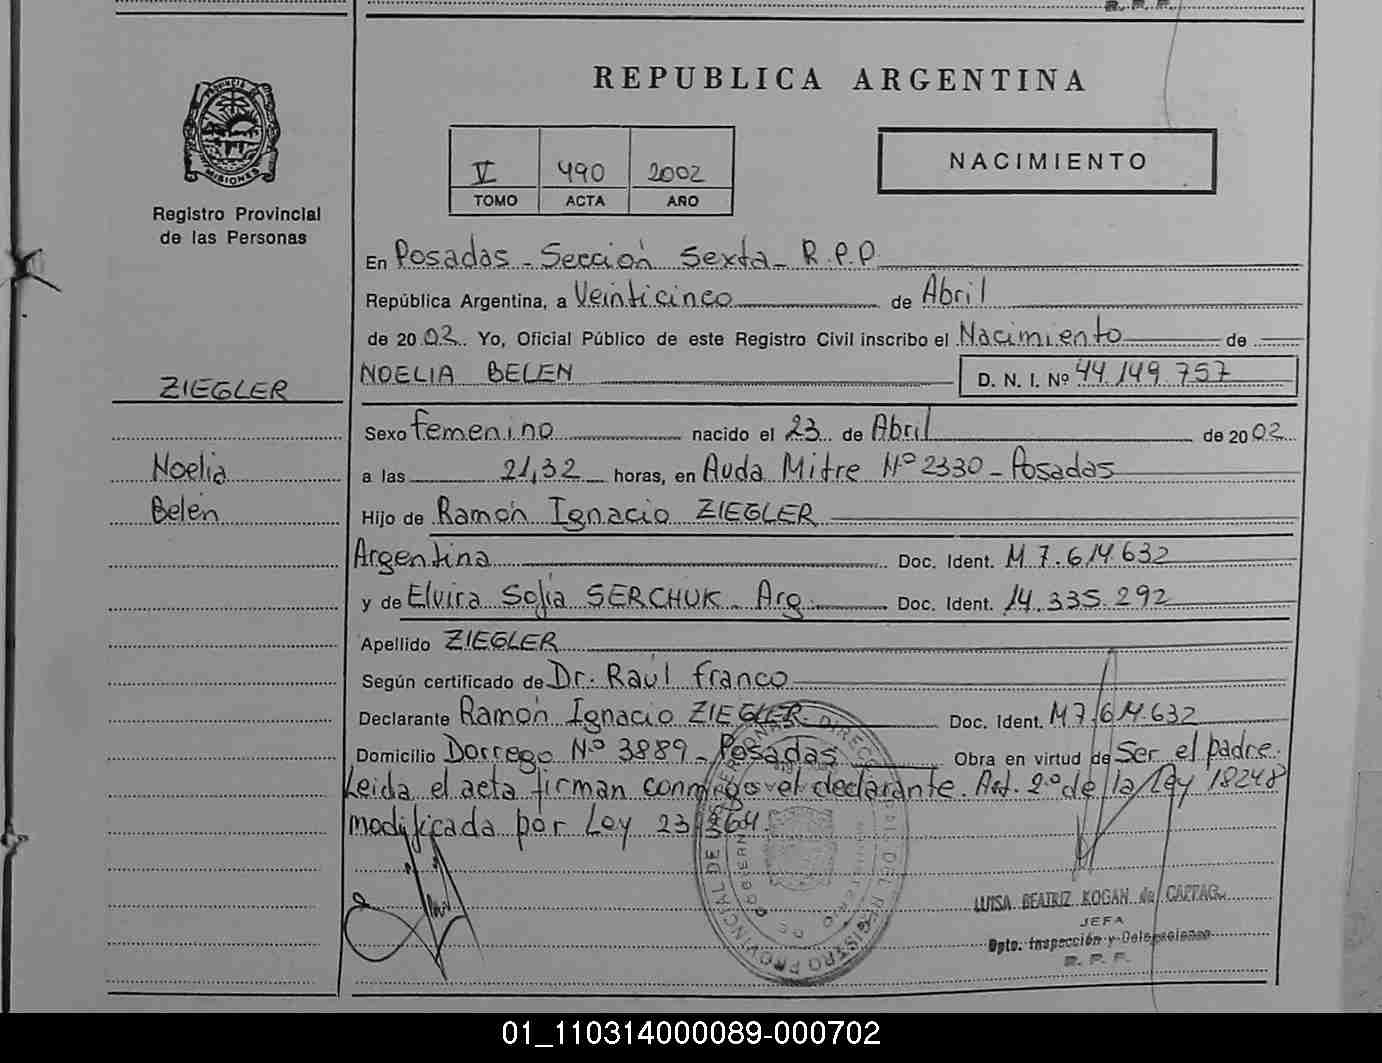 R. P. P.
REPUBLICA ARGENTINA
PROVINCIA DE
MISIONES
Registro Provincial
de las Personas
V 490 2002
TOMO ACTA AÑO
NACIMIENTO
En Posadas - Sección Sexta - R.P.P.
República Argentina, a Veinticinco de Abril
de 2002. Yo, Oficial Público de este Registro Civil inscribo el Nacimiento de
NOELIA BELEN D. N. I. Nº 44.149.757
ZIEGLER
Noelia
Belén
Sexo femenino nacido el 23 de Abril de 2002
a las 21,32 horas, en Avda Mitre Nº 2330 - Posadas
Hijo de Ramón Ignacio ZIEGLER
Argentina Doc. Ident. M 7.614.632
y de Elvira Sofia SERCHUK - Arg. Doc. Ident. 14.335.292
Apellido ZIEGLER
Según certificado de Dr. Raúl Franco
Declarante Ramón Ignacio ZIEGLER Doc. Ident. M 7.614.632
Domicilio Dorrego Nº 3889 - Posadas Obra en virtud de Ser el padre.
Leida el acta firman conmigo el declarante. Art. 2º de la Ley 18248
modificada por Ley 23.264.
LUISA BEATRIZ KOGAN de
JEFA
Dpto. Inspección y Delegaciones
R. P. P.
01_110314000089-000702